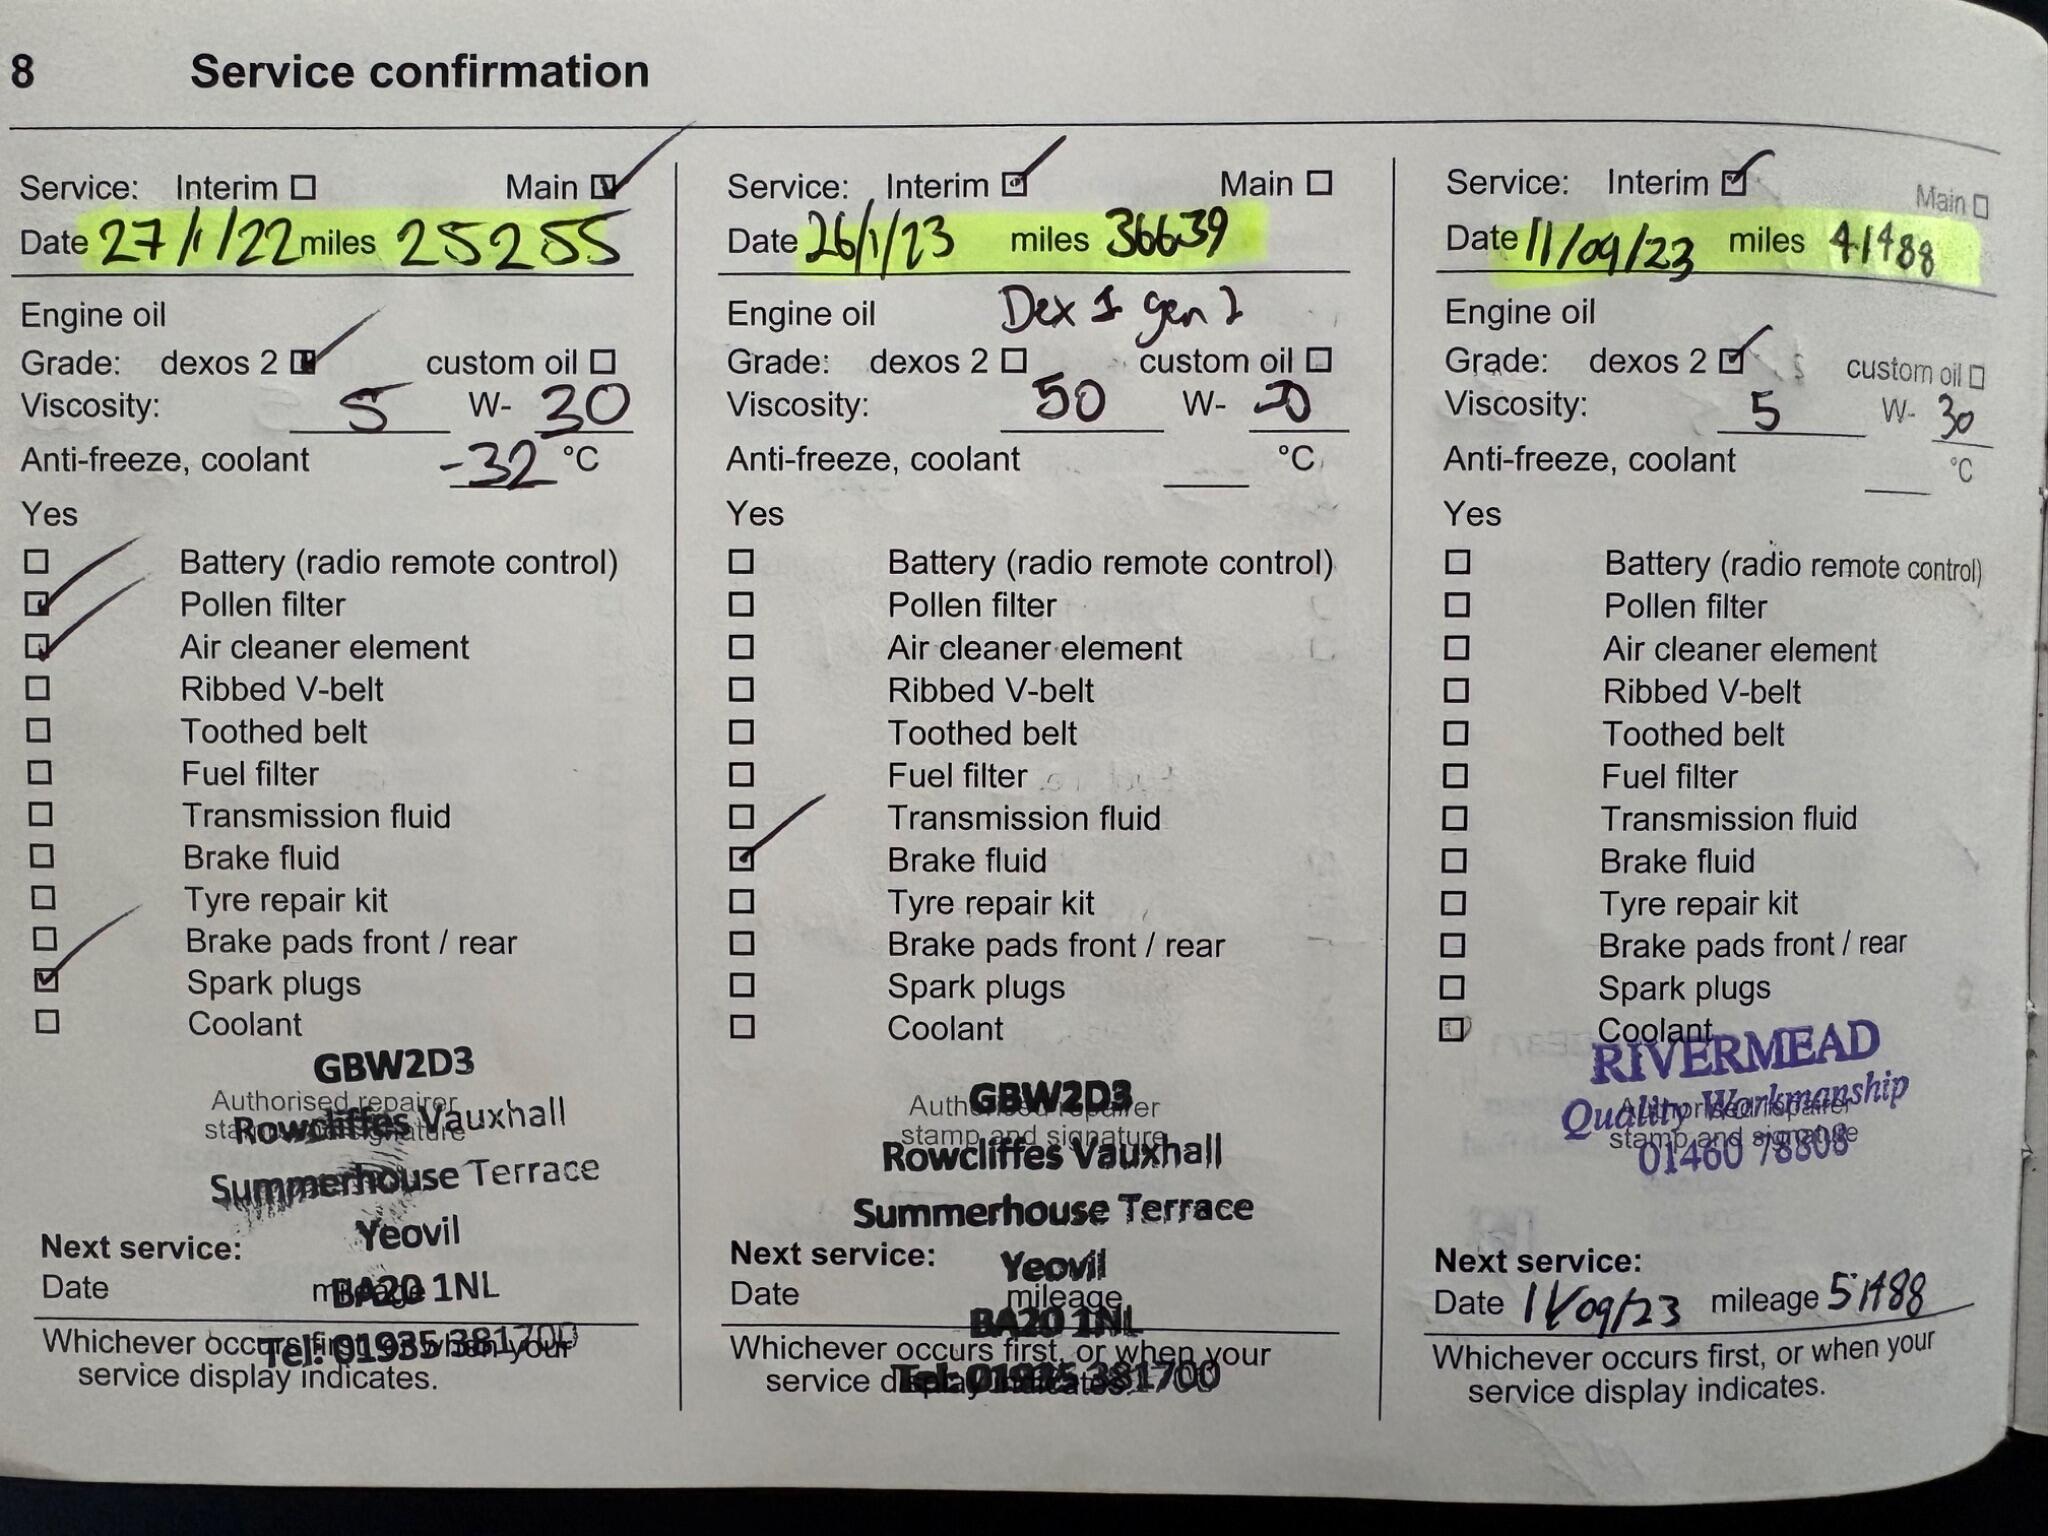 8 Service confirmation
Service: Interim Main
Date 27/1/22 miles 25255
Engine oil
Grade: dexos 2 custom oil
Viscosity: 5 W- 30
Anti-freeze, coolant -32 °C
Yes
Battery (radio remote control)
Pollen filter
Air cleaner element
Ribbed V-belt
Toothed belt
Fuel filter
Transmission fluid
Brake fluid
Tyre repair kit
Brake pads front / rear
Spark plugs
Coolant
GBW2D3
Authorised repairer
stamp and signature
Rowcliffes Vauxhall
Summerhouse Terrace
Yeovil
Next service:
Date mileage
BA20 1NL
Whichever occurs first, or when your
Tel: 01935 381700
service display indicates.
Service: Interim Main
Date 26/1/23 miles 36639
Engine oil Dex 1 gen 2
Grade: dexos 2 custom oil
Viscosity: 50 W- 20
Anti-freeze, coolant °C
Yes
Battery (radio remote control)
Pollen filter
Air cleaner element
Ribbed V-belt
Toothed belt
Fuel filter
Transmission fluid
Brake fluid
Tyre repair kit
Brake pads front / rear
Spark plugs
Coolant
GBW2D3
Authorised repairer
stamp and signature
Rowcliffes Vauxhall
Summerhouse Terrace
Next service:
Yeovil
Date mileage
BA20 1NL
Whichever occurs first, or when your
Tel: 01935 381700
service display indicates.
Service: Interim Main
Date 11/09/23 miles 41488
Engine oil
Grade: dexos 2 custom oil
Viscosity: 5 W- 30
Anti-freeze, coolant °C
Yes
Battery (radio remote control)
Pollen filter
Air cleaner element
Ribbed V-belt
Toothed belt
Fuel filter
Transmission fluid
Brake fluid
Tyre repair kit
Brake pads front / rear
Spark plugs
Coolant
RIVERMEAD
Quality Workmanship
Authorised repairer
stamp and signature
01460 78808
Next service:
Date 11/09/23 mileage 51488
Whichever occurs first, or when your
service display indicates.